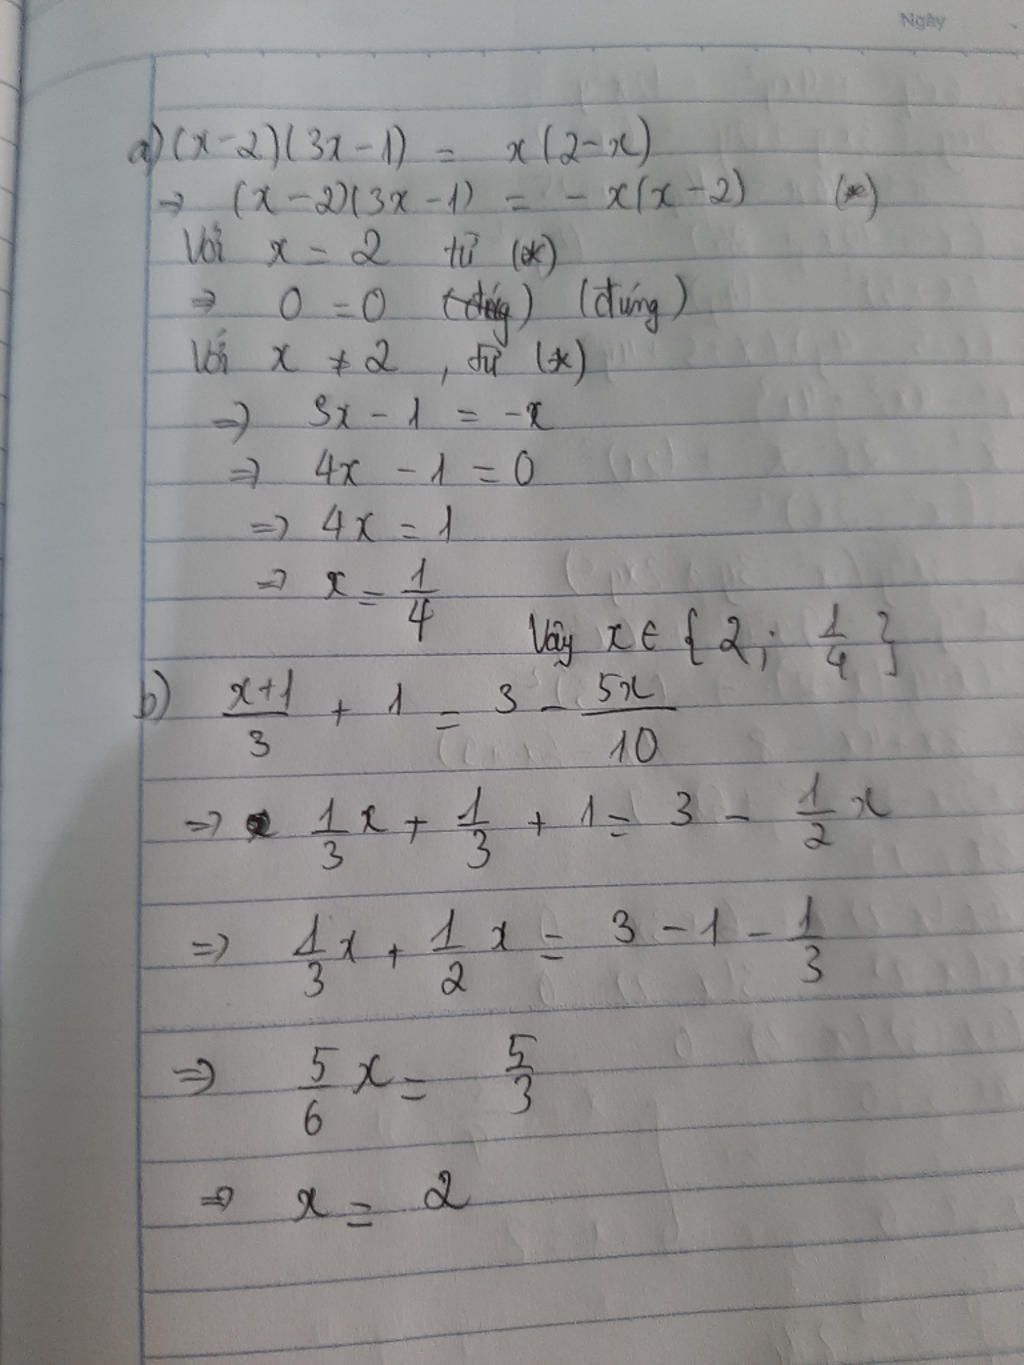 Ngày
a) (x-2)(3x-1) = x(2-x)
→ (x-2)(3x-1) = -x(x-2) (*)
Với x = 2 từ (*)
⇒ 0 = 0 (đúng) (đúng)
Với x ≠ 2, từ (*)
⇒ 3x - 1 = -x
⇒ 4x - 1 = 0
⇒ 4x = 1
⇒ x = 1/4
Vậy x ∈ {2; 1/4}
b) (x+1)/3 + 1 = 3 - 5x/10
⇒ 1/3 x + 1/3 + 1 = 3 - 1/2 x
⇒ 1/3 x + 1/2 x = 3 - 1 - 1/3
⇒ 5/6 x = 5/3
⇒ x = 2